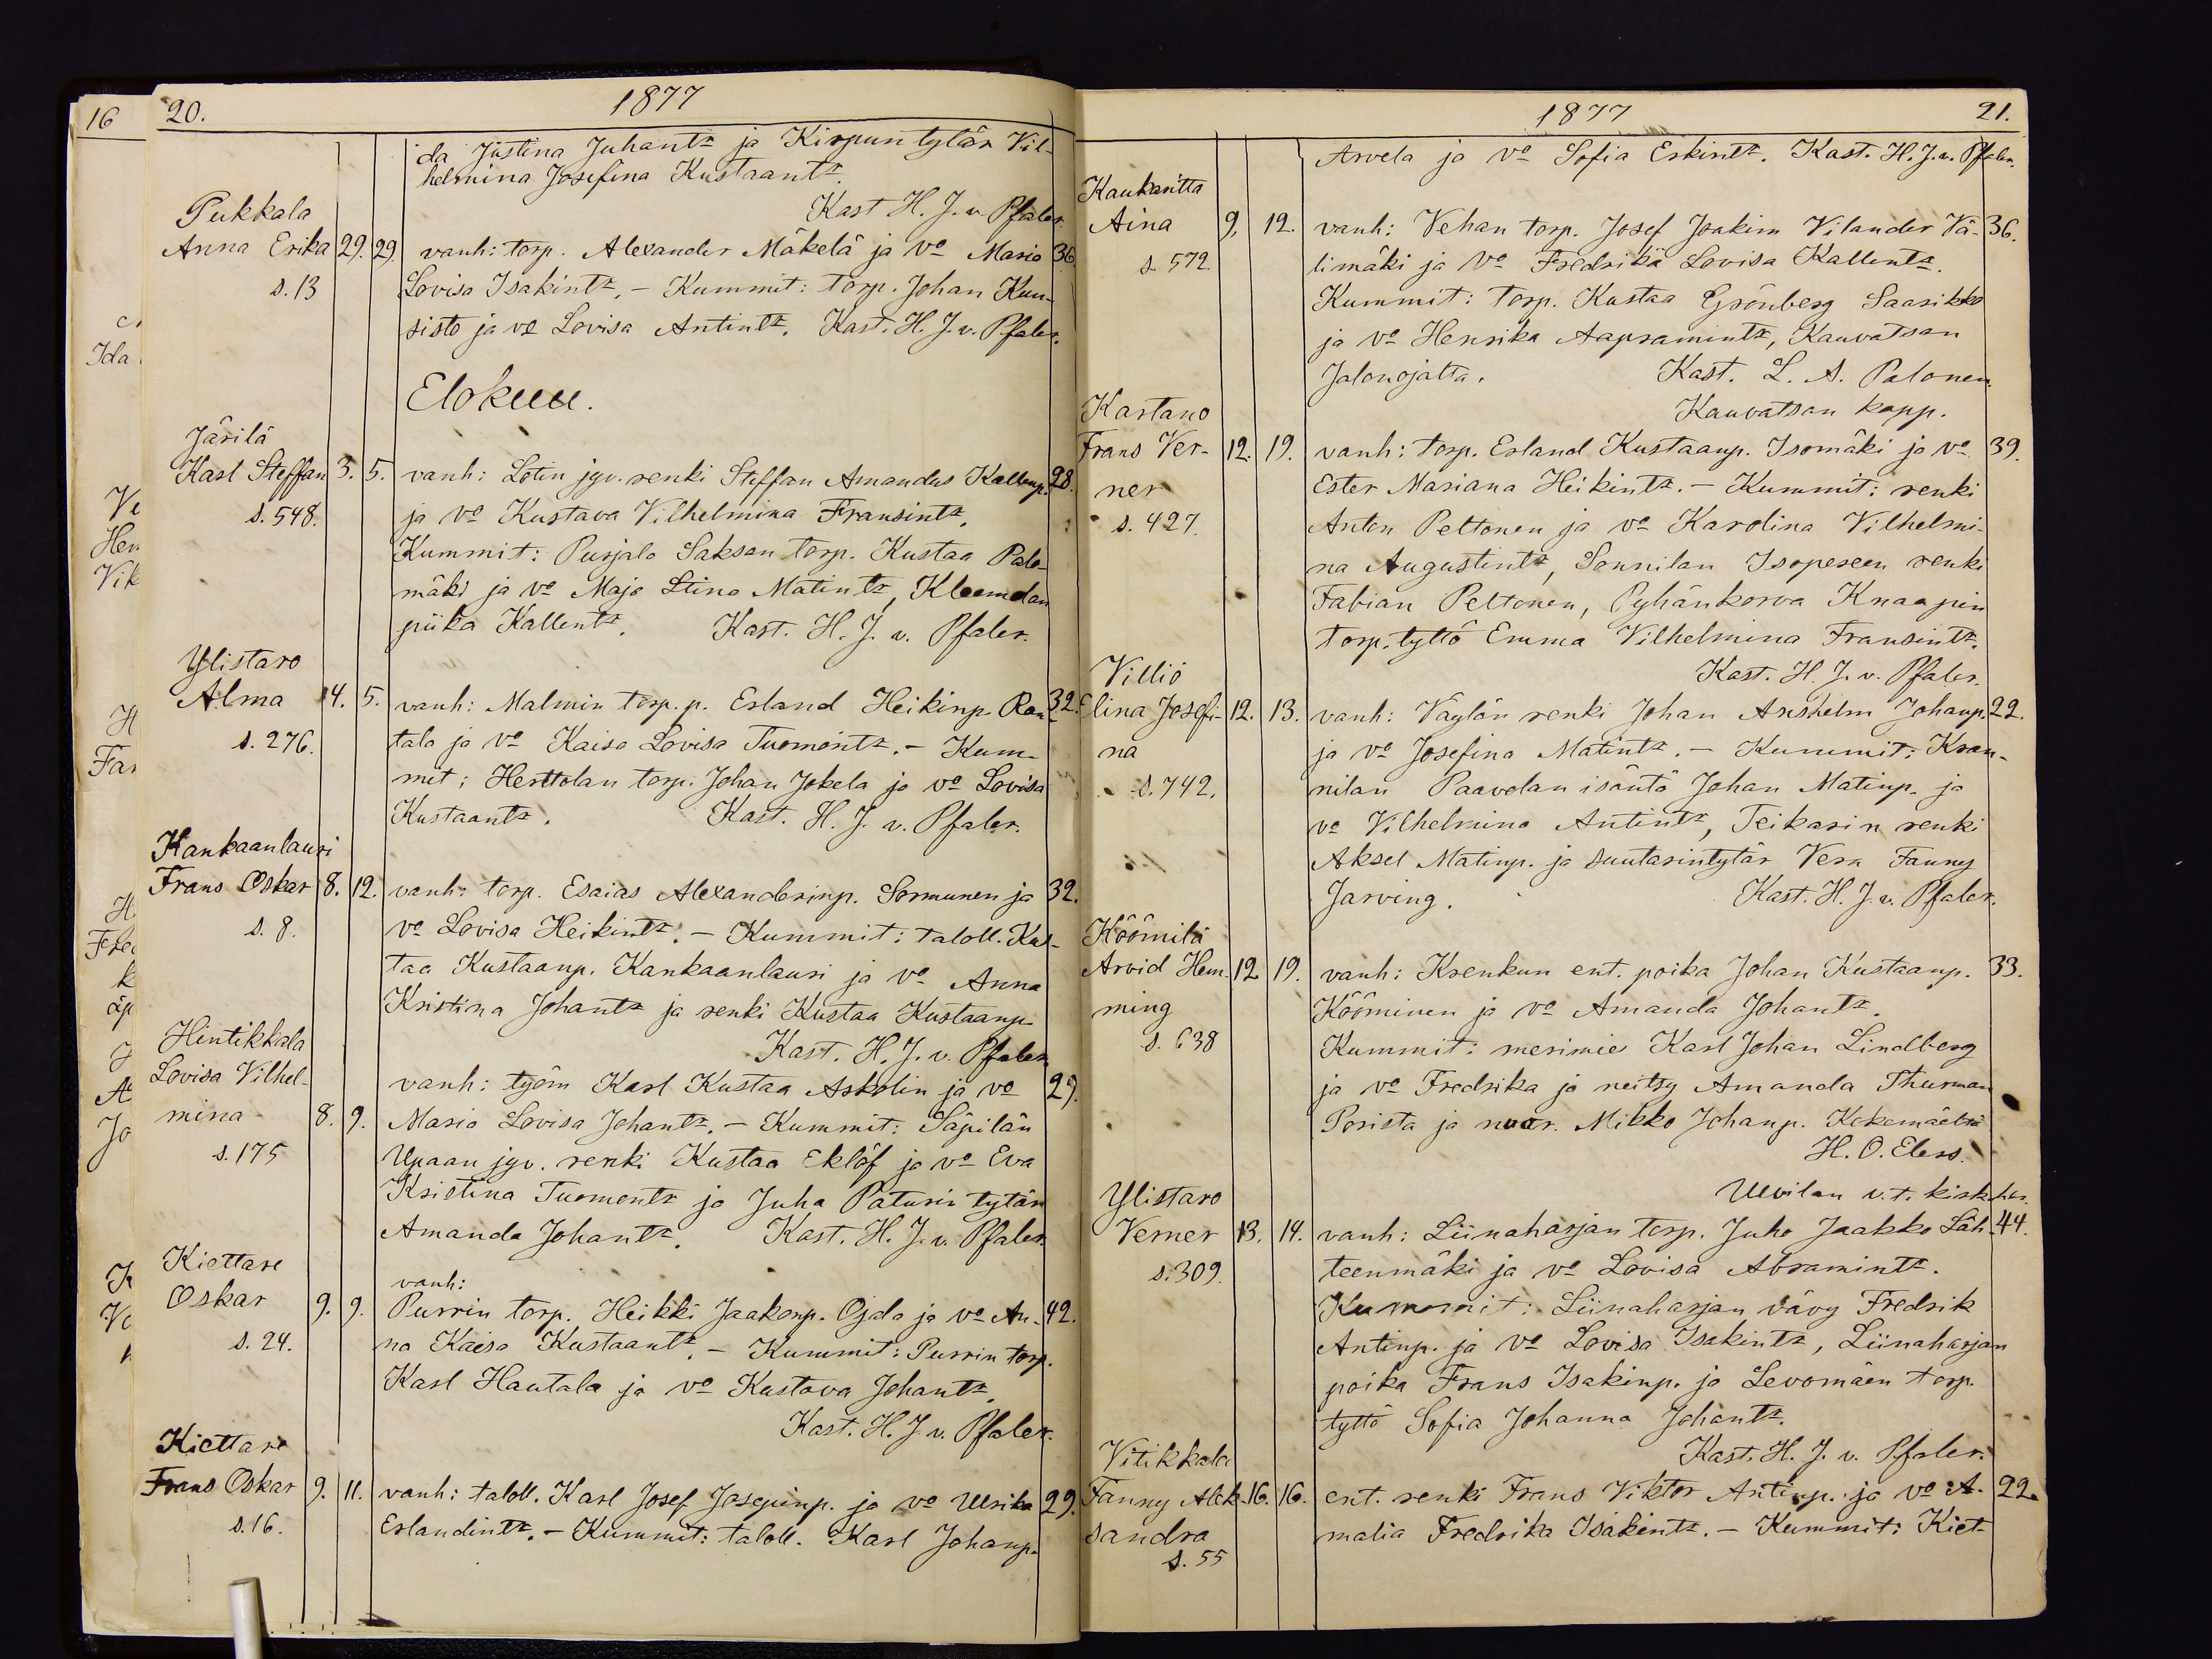 16
20.
1877
da Justina Juhantr ja Kirpun tytär Vil-
helmina Josefina Kustaantr.
Kast H. J. v. Pfaler.
Pukkala
Anna Erika 29. 29. vanh: torp. Alexander Mäkelä ja vo Maria 36.
s. 13
Lovisa Isakintr. - Kummit: torp. Johan Kuu-
sisto ja vo Lovisa Antintr. Kast. H. J. v. Pfaler.
Elokuu.
Järilä
Karl Steffan 3. 5. vanh: Lotin jgv. renki Steffan Amandus Kallenp. 28.
s. 548.
ja vo Kustava Vilhelmina Fransintr.
Kummit: Purjala Saksan torp. Kustaa Palo-
mäki ja vo Maja Stina Matintr, Kleemolan
piika Kallentr. Kast. H. J. v. Pfaler.
Ylistaro
Alma 4. 5. vanh: Malmin torp. p. Erland Heikinp. Ran- 32.
s. 276.
tala ja vo Kaisa Lovisa Tuomontr. - Kum-
mit: Herttolan torp. Johan Jokela ja vo Lovisa
Kustaantr. Kast. H. J. v. Pfaler.
Kankaanlauri
Frans Oskar 8. 12. vanh: torp. Esaias Alexanderinp. Sormunen ja 32.
s. 8.
vo Lovisa Heikintr. - Kummit: taloll. Kus-
taa Kustaanp. Kankaanlauri ja vo Anna
Kristina Johantr ja renki Kustaa Kustaanp.
Kast. H. J. v. Pfaler.
Hintikkala
Lovisa Vilhel- vanh: työm Karl Kustaa Askolin ja vo 29.
mina 8. 9. Maria Lovisa Johantr. - Kummit: Säpilän
s. 175
Upaan jgv. renki Kustaa Eklöf ja vo Eva
Kristina Tuomentr ja Juha Paturin tytär
Amanda Johantr. Kast. H. J. v. Pfaler.
Kiettare
vanh:
Oskar 9. 9. Purrin torp. Heikki Jaakonp. Ojala ja vo An- 42.
s. 24.
na Kaisa Kustaantr. - Kummit: Purrin torp.
Karl Hautala ja vo Kustava Johantr.
Kast. H. J. v. Pfaler.
Kiettare
Frans Oskar 9. 11. vanh: taloll. Karl Josef Josepinp. ja vo Ulrika 29.
s. 16.
Erlandintr. - Kummit: taloll. Karl Johanp.
1877
21.
Arvela ja vo Sofia Erkintr. Kast. H. J. v. Pfaler.
Kaukaritta
Aina 9. 12. vanh: Vehan torp. Josef Joakim Vilander Vä- 36.
s. 572.
limäki ja vo Fredrika Lovisa Kallentr.
Kummit: torp. Kustaa Grönberg Saarikko
ja vo Henrika Aapramintr, Kauvatsan
Jalonojalta. Kast. L. A. Palonen.
Kauvatsan kapp.
Kartano
Frans Ver- 12. 19. vanh: torp. Erland Kustaanp. Isomäki ja vo 39.
ner
Ester Mariana Heikintr. - Kummit: renki
s. 427.
Anton Peltonen ja vo Karolina Vilhelmi-
na Augustintr, Sonnilan Isopeseen renki
Fabian Peltonen, Pyhänkorva Knaapin
torp. tyttö Emma Vilhelmina Fransintr.
Kast. H. J. v. Pfaler.
Villiö
Elina Josefi- 12. 13. vanh: Väylän renki Johan Anshelm Johanp. 22.
na
ja vo Josefina Matintr. - Kummit: Kran-
s. 742.
nilan Paavolan isäntä Johan Matinp. ja
vo Vilhelmina Antintr, Teikarin renki
Aksel Matinp. ja suutarintytär Vera Fanny
Jarving. Kast. H. J. v. Pfaler.
Köömilä
Arvid Hem- 12 19. vanh: Krenkun ent. poika Johan Kustaanp. 33.
ming
Kööminen ja vo Amanda Johantr.
s. 638
Kummit: merimie Karl Johan Lindberg
ja vo Fredrika ja neitsy Amanda Thurman
Porista ja nuor. Mikko Johanp. Kokemäeltä
H. O. Elers.
Ulvilan v. t. kirk. her.
Ylistaro
Verner 13. 14. vanh: Liinaharjan torp. Juho Jaakko Läh- 44.
s. 309.
teenmäki ja vo Lovisa Abramintr.
Kummit: Liinaharjan vävy Fredrik
Antinp. ja vo Lovisa Isakintr, Liinaharjan
poika Frans Isakinp. ja Levomäen torp.
tyttö Sofia Johanna Johantr.
Kast. H. J. v. Pfaler.
Vitikkala
Fanny Alek- 16. 16. ent. renki Frans Viktor Antinp. ja vo A- 22.
sandra
malia Fredrika Isakintr. - Kummit: Kiet-
s. 55